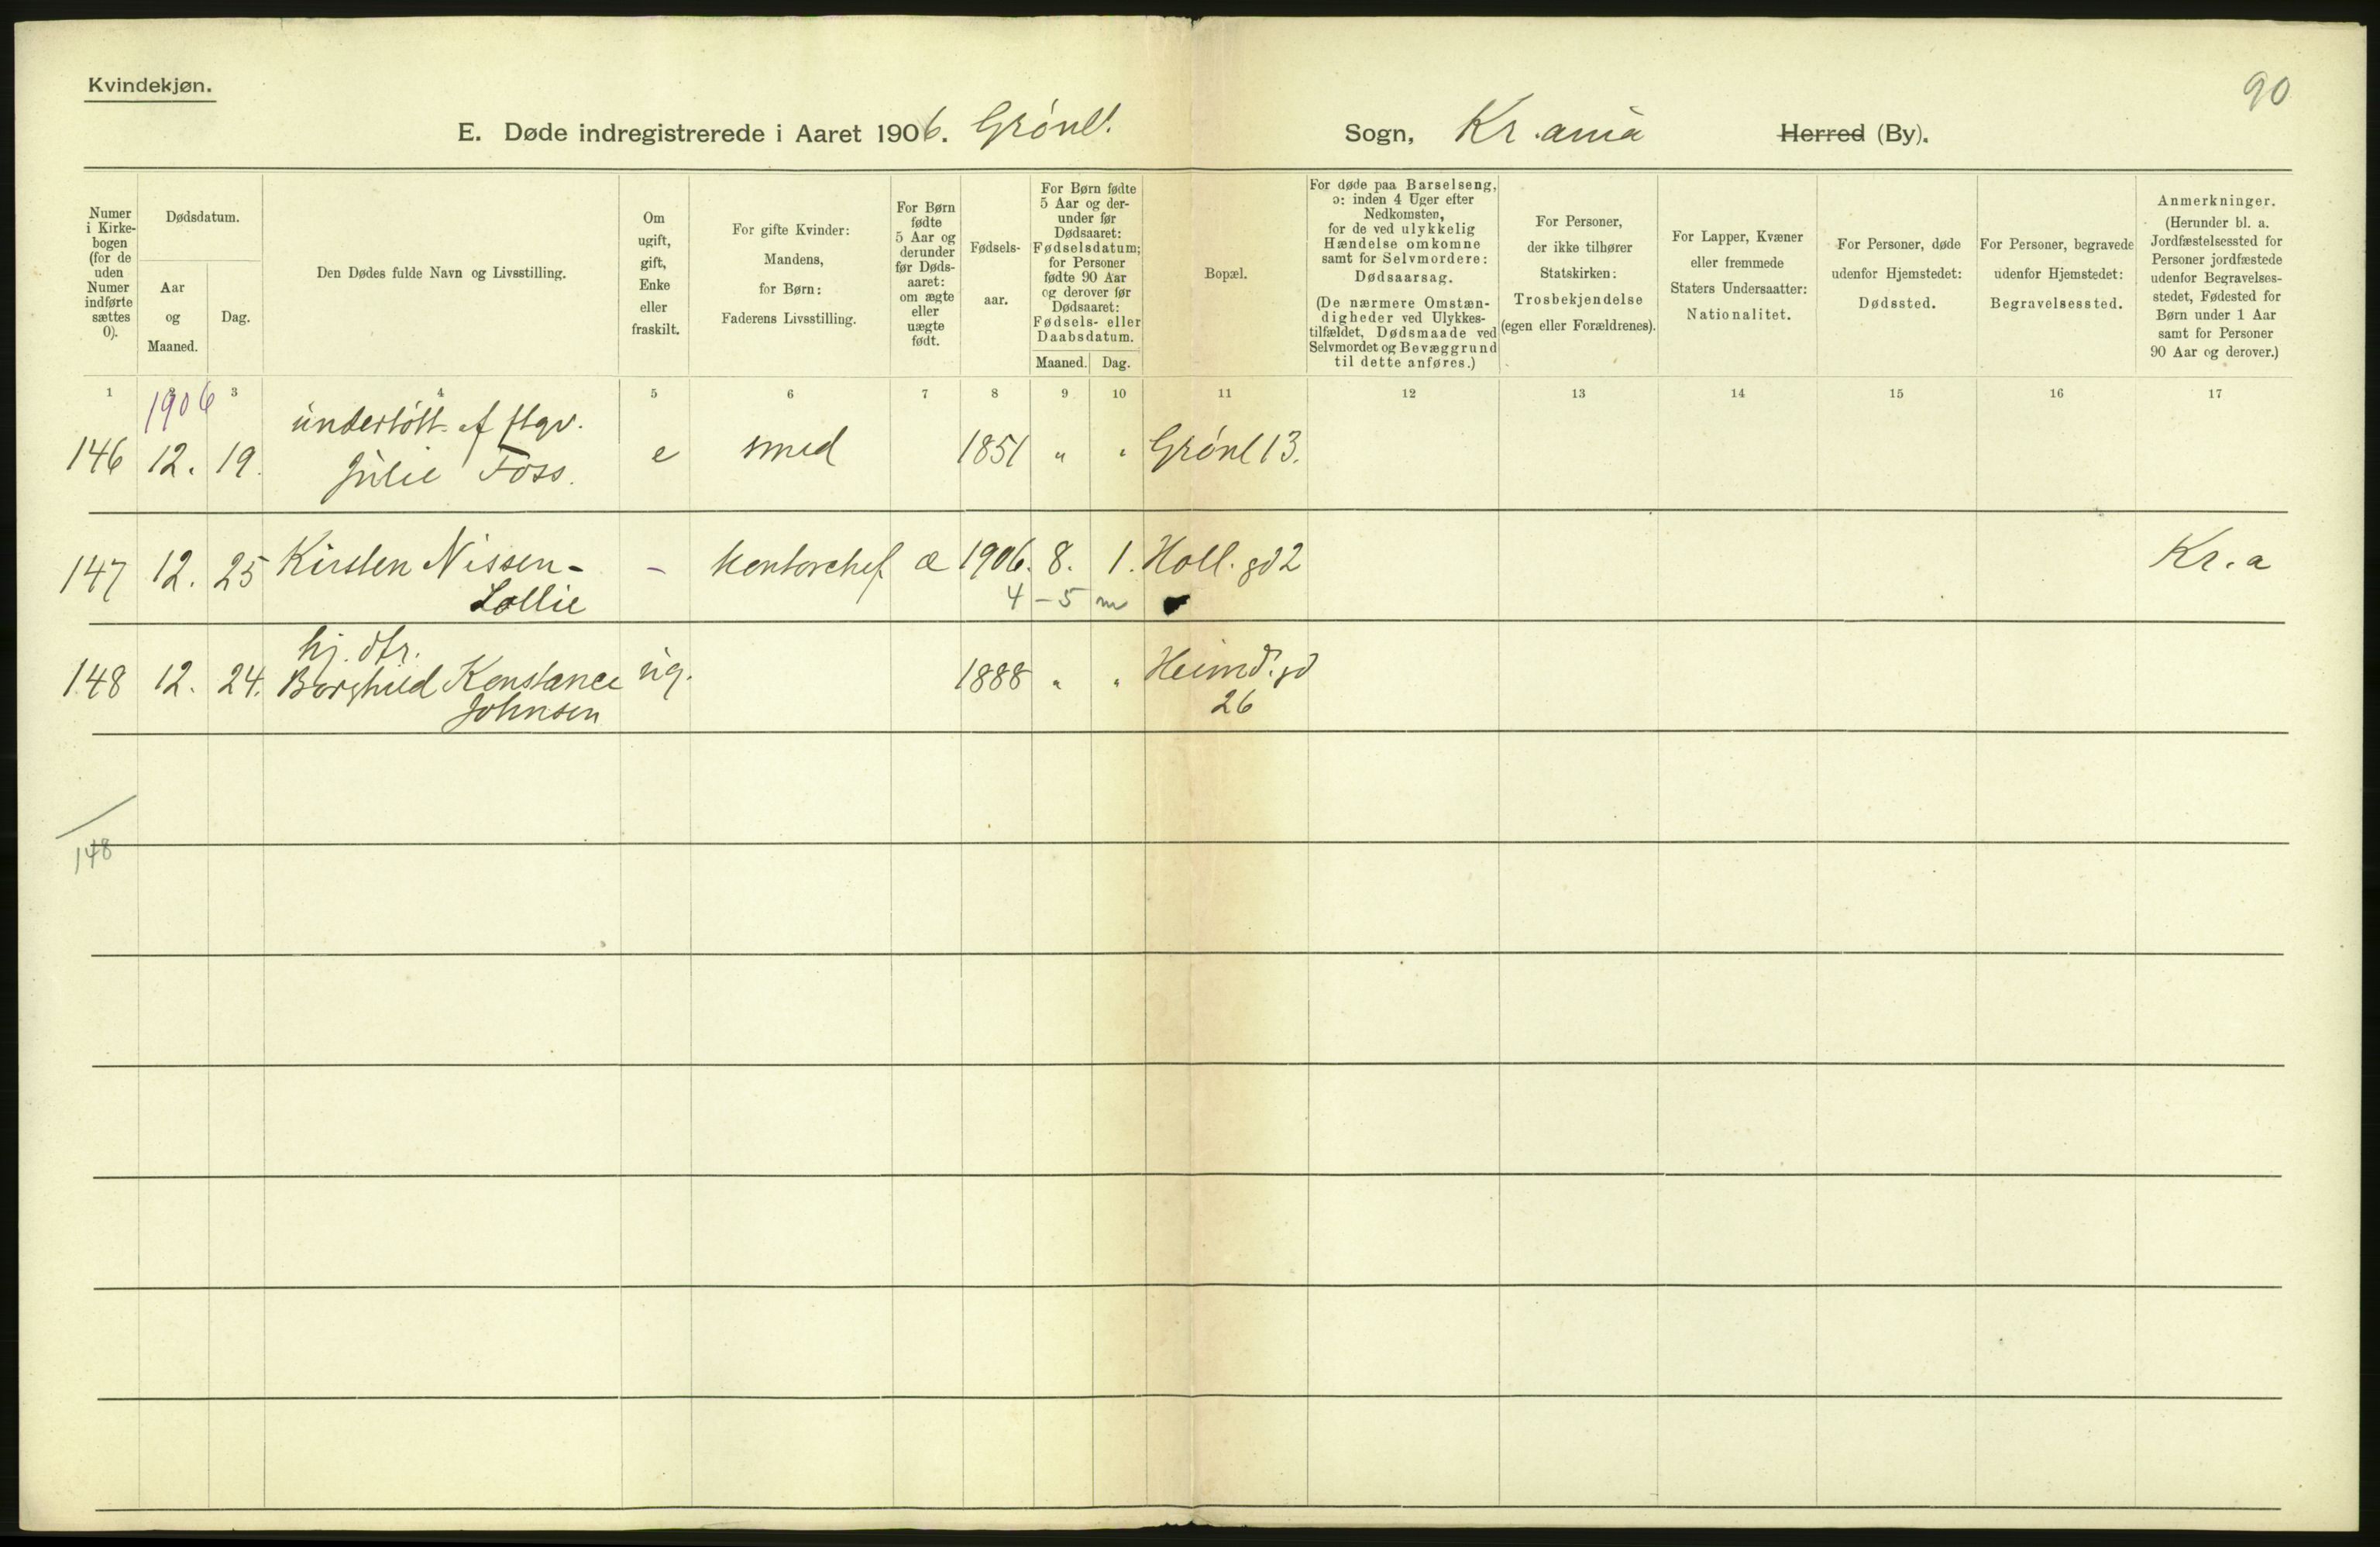 Kvindekjøn.
90
E. Døde indregistrerede i Aaret 1906. Grønl. Sogn, Kr.ania Herred (By).
Numer i Kirke-bogen (for de uden Numer indførte sættes 0).
Dødsdatum.
Aar og Maaned.
Dag.
Den Dødes fulde Navn og Livsstilling.
Om ugift, gift, Enke eller fraskilt.
For gifte Kvinder: Mandens, for Børn: Faderens Livsstilling.
For Børn fødte 5 Aar og derunder før Døds-aaret: om ægte eller uægte født.
Fødsels-aar.
For Børn fødte 5 Aar og der-under før Dødsaaret: Fødselsdatum; for Personer fødte 90 Aar og derover før Dødsaaret: Fødsels- eller Daabsdatum.
Maaned. Dag.
Bopæl.
For døde paa Barselseng, ɔ: inden 4 Uger efter Nedkomsten, for de ved ulykkelig Hændelse omkomne samt for Selvmordere: Dødsaarsag.
(De nærmere Omstæn-digheder ved Ulykkes-tilfældet, Dødsmaade ved Selvmordet og Bevæggrund til dette anføres.)
For Personer, der ikke tilhører Statskirken: Trosbekjendelse (egen eller Forældrenes).
For Lapper, Kvæner eller fremmede Staters Undersaatter: Nationalitet.
For Personer, døde udenfor Hjemstedet: Dødssted.
For Personer, begravede udenfor Hjemstedet: Begravelsessted.
Anmerkninger.
(Herunder bl. a. Jordfæstelsessted for Personer jordfæstede udenfor Begravelses-stedet, Fødested for Børn under 1 Aar samt for Personer 90 Aar og derover.)
1 2 3 4 5 6 7 8 9 10 11 12 13 14 15 16 17
1906
understøtt. af ftgv.
146 12. 19. Julie Foss. e smed 1851 " " Grønl 13.
147 12. 25 Kirsten Nissen- - kontorchef æ 1906. 8. 1. Holl. gd 2 Kr.a
Lollie 4 - 5 m
hj. dtr.
148 12. 24. Borghild Konstance ug. 1888 " " Heimd. gd
Johnsen 26
148